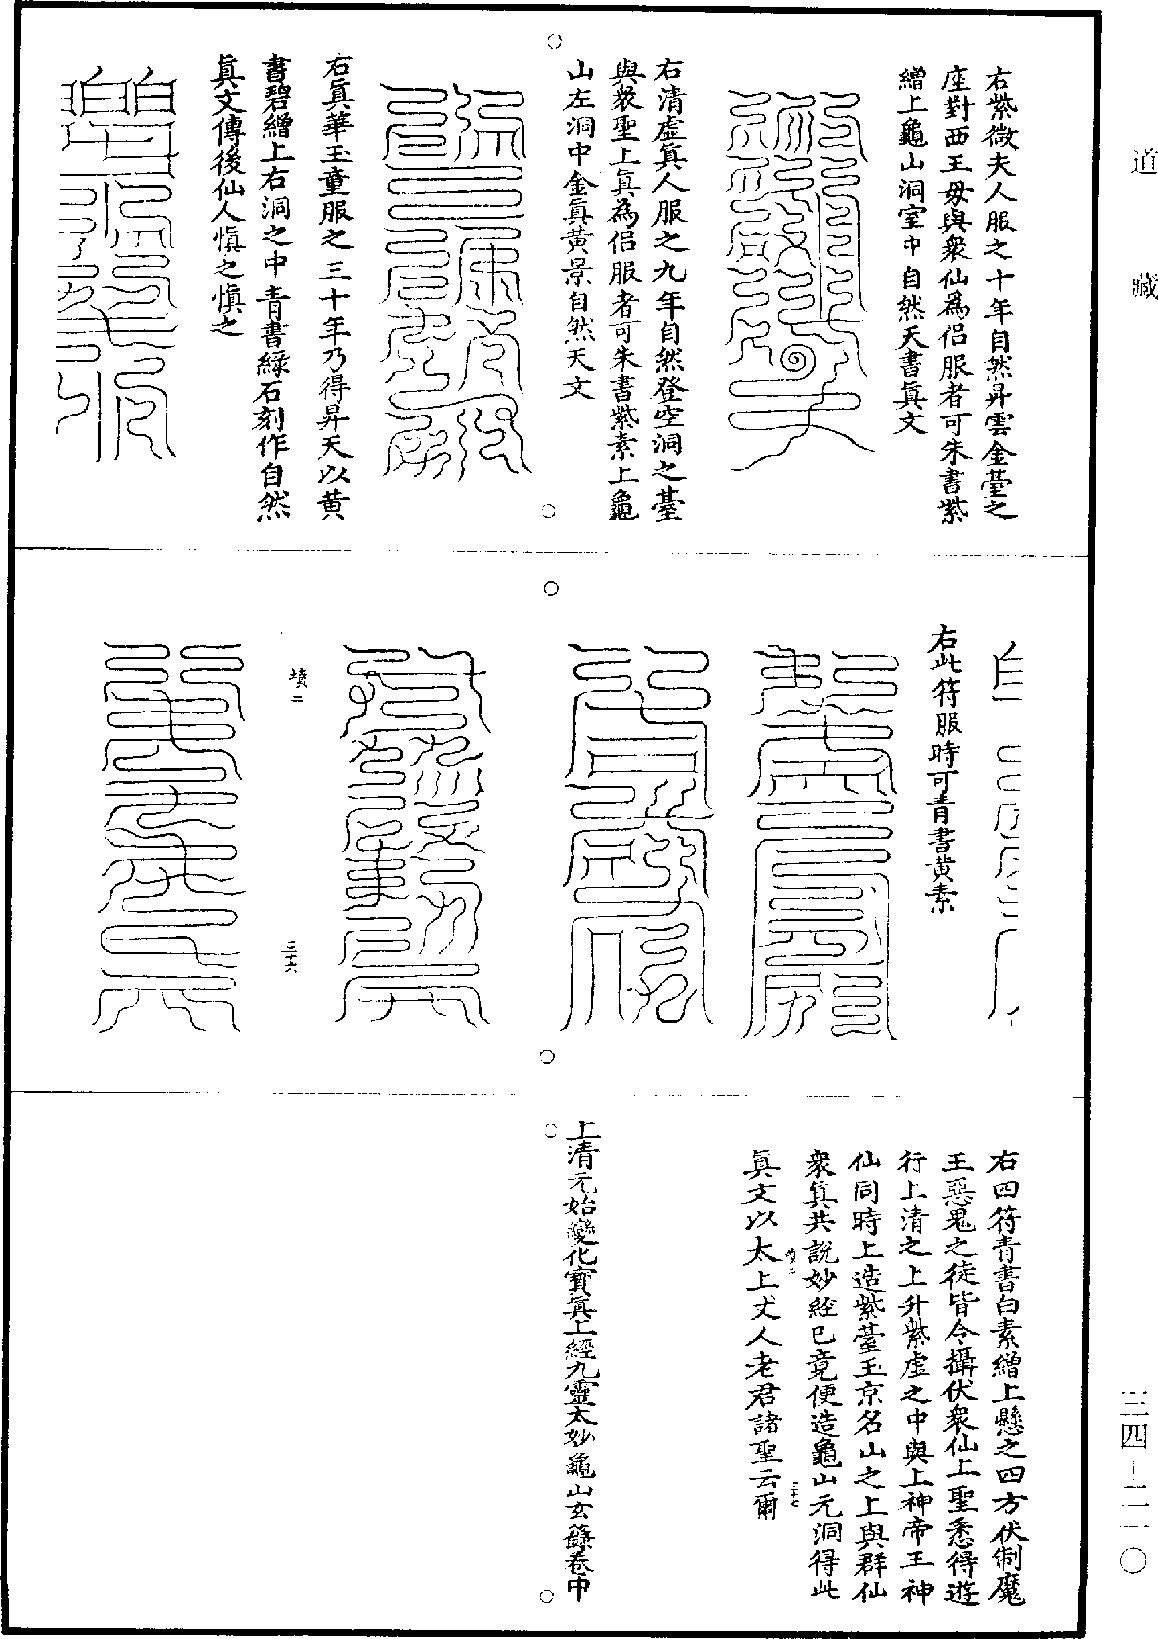 道藏
右紫微夫人服之十年自然昇雲金臺之
座對西王母與衆仙爲侣服者可朱書紫
繒上龜山洞室中自然天書眞文
右清虛眞人服之九年自然登空洞之臺
與衆聖上眞爲侣服者可朱書紫素上龜
山左洞中金眞黄景自然天文
右眞華玉童服之三十年乃得昇天以黄
書碧繒上右洞之中青書緑石刻作自然
眞文傳後仙人愼之愼之
右此符服時可青書黄素
墳二
三十六
右四符青書白素繒上懸之四方伏制魔
王惡鬼之徒皆令攝伏衆仙上聖悉得遊
行上清之上升紫虛之中與上神帝王神
仙同時上造紫臺玉京名山之上與群仙
衆眞共說妙經已竟便造龜山元洞得此
三十七
眞文以太上丈人老君諸聖云爾
上清元始變化寳眞上經九靈太妙龜山玄籙卷中
三四—二一〇